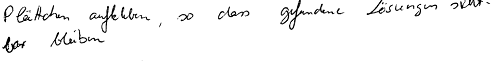 Plättchen aufkleben, so dass gefundene Lösungen sicht-
bar bleiben